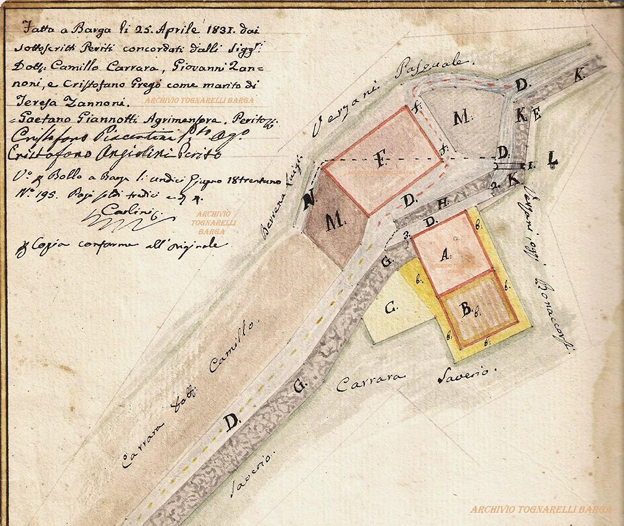 Fatta a Barga li 25. Aprile 1831. dai
sottoscritti Periti concordati dalli Sigg.ri
Dott. Camillo Carrara, Giovanni Zan=
noni, e Cristofano Grego come marito di
Teresa Zannoni.
ARCHIVIO TOGNARELLI BARGA
=Gaetano Giannotti Agrimensore, Perito
Cristofano Angiolini Perito
Bollo a Barga li undici Giugno 18trentuno
N.o 195.
Carlini
ARCHIVIO
TOGNARELLI
BARGA
Copia conforme all'originale
Verzani Pasquale.
D.
K.
M.
K
E
F.
D.
L
K
N
M.
D.
H
D.
Luigi
Verzani oggi Bonaccorsi.
G.
A.
B.
6.
6.
6.
6.
6.
6.
Carrara Dott. Camillo.
G.
D.
Carrara Saverio.
Saverio.
ARCHIVIO TOGNARELLI BARGA